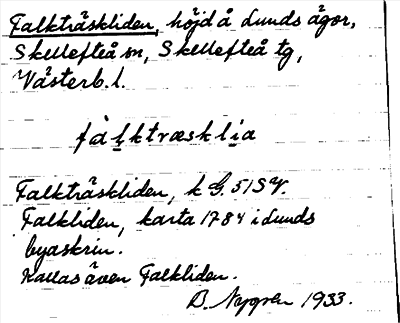 Falkträskliden, höjd å Lunds ägor,
Skellefteå sn, Skellefteå tg,
Västerb. l.
fàl̥ktræsklịa
Falkträskliden, k G. 51 SV.
Falkliden, karta 1784 i Lunds
byaskrin.
Kallas även Falkliden.
B. Nygren 1933.